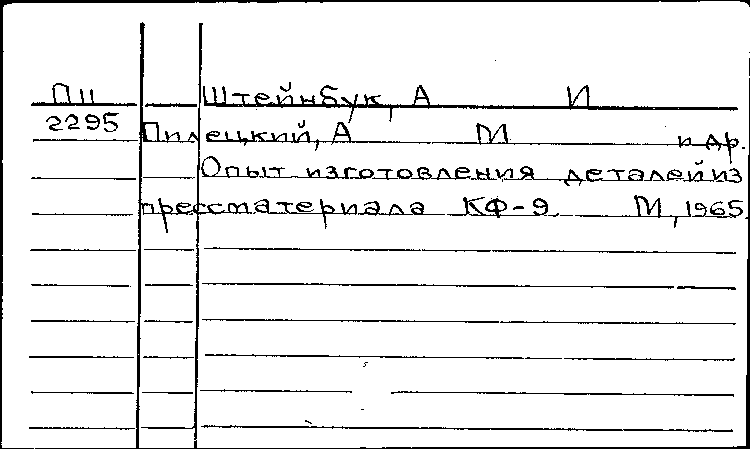 ПII Штейнбук, А И
2295 Пилецкий, А М и др.
Опыт изготовления деталей из
прессматериала КФ-9 М, 1965.